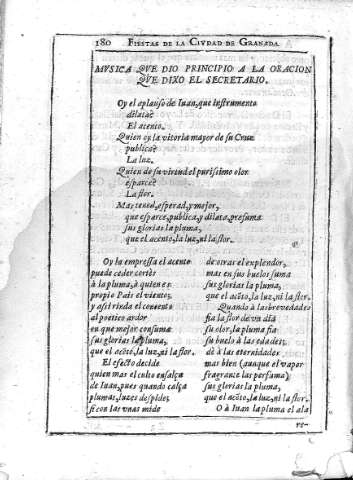 180 FIESTAS DE LA CIVDAD DE GRANADA.
MVSICA QVE DIO PRINCIPIO A LA ORACION
QVE DIXO EL SECRETARIO.
Oy el aplauso de Iuan, que instrumento
dilata?
El acento.
Quien oy la vitoria mayor de su Cruz
publica?
La luz.
Quien de su virtud el purissimo olor
esparce?
La flor.
Mas tened, esperad, y mejor,
que esparce, publica, y dilata, presuma
sus glorias la pluma,
que el acento, la luz, ni la flor.
Oy la empressa el acento
puede ceder cortès
à la pluma, à quien es
propio Pais el viento;
y assi rinda el contento
al poetico ardor
en que mejor consuma
sus glorias la pluma,
que el acẽto, la luz, ni la flor.
El efecto decide
quien mas el culto ensalça
de Iuan, pues quando calça
plumas, luzes despide;
si con las vnas mide
de otras el explendor,
mas en sus buelos suma
sus glorias la pluma,
que el acẽto, la luz, ni la flor.
Quando à las brevedades
fia la flor de vn dia
su olor, la pluma fia
su buelo à las edades;
dè à las eternidades
mas bien (aunque el vapor
fragrante las perfuma)
sus glorias la pluma,
que el acẽto, la luz, ni la flor.
O à Iuan la pluma el ala